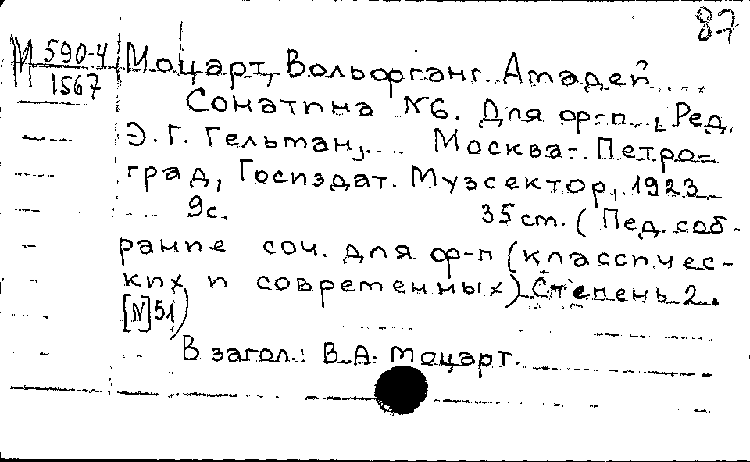 87
М 590-4
1567
Моцарт, Вольфганг Амадей
Сонатина №6. Для ф-п., Ред.
Э. Г. Гельман, Москва-Петро-
град, Госиздат. Музсектор, 1923
9с. 35 cm. (Пед. соб-
рание соч. для ф-п (классичес-
ких и современных) Степень 2.
[N]51)
В загол.: В.А. Моцарт.